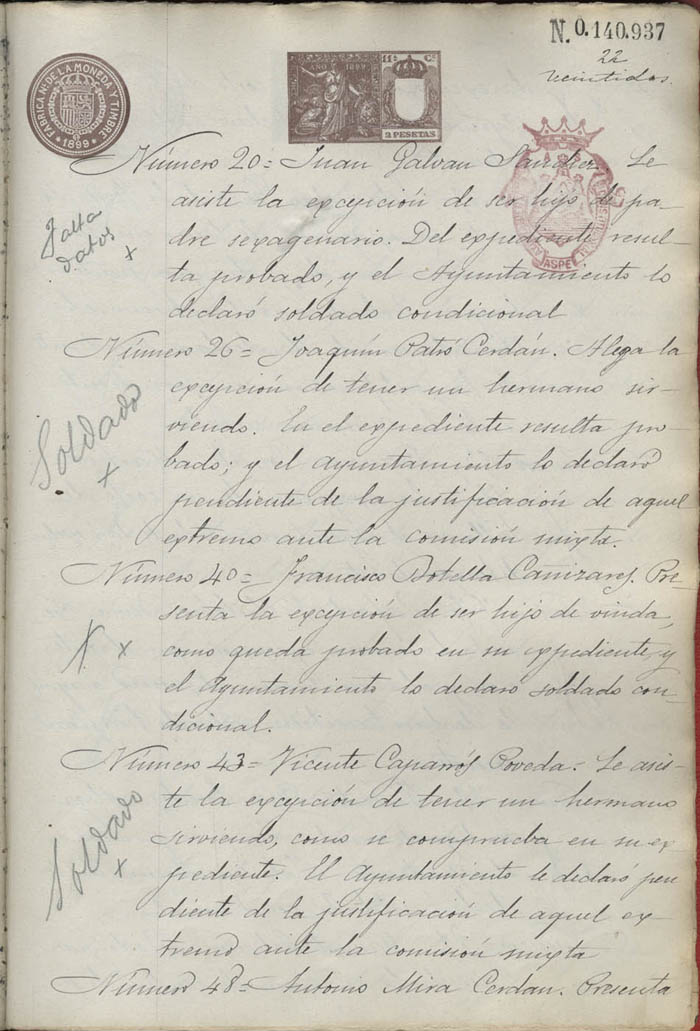 N. 0.140.937
22
veintidos.
FABRICA NAL DE LA MONEDA Y TIMBRE
* 1899 *
AÑO 1899
11ª Cª
2 PESETAS
ASPE
Número 20= Juan Galvan Le
asiste la excepción de ser hijo de pa-
dre sexagenario. Del expediente resul-
ta probado, y el Ayuntamiento lo
declaró soldado condicional
Falta
datos
x
Número 26= Joaquín Patró Cerdán. Alega la
excepción de tener un hermano sir-
viendo. En el expediente resulta pro-
bado; y el ayuntamiento lo declaró
pendiente de la justificación de aquel
extremo ante la comisión mixta.
Soldado
x
Número 40= Francisco Botella Cañizares. Pre-
senta la excepción de ser hijo de viuda,
como queda probado en su expediente, y
el ayuntamiento lo declaró soldado con-
dicional.
x
Número 43= Vicente Caparrós Poveda= Le asis-
te la excepción de tener un hermano
sirviendo, como se comprueba en su ex-
pediente. El Ayuntamiento le declaró pen
diente de la justificación de aquel ex-
tremo ante la comisión mixta
Soldado
x
Número 48= Antonio Mira Cerdan. Presenta